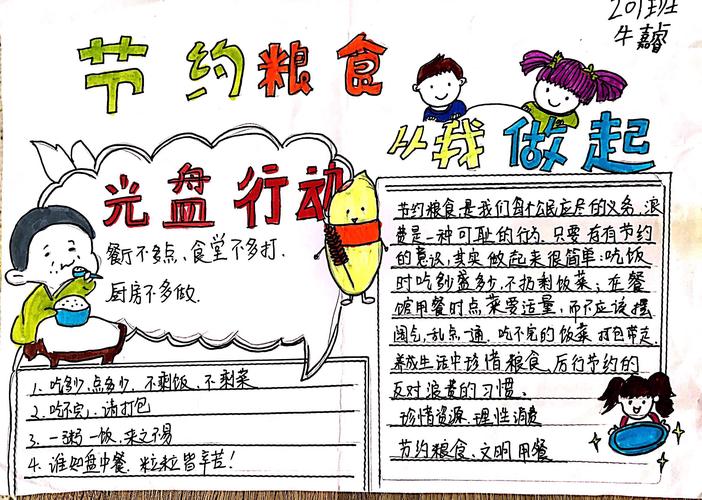 201班
牛嘉睿
节约粮食
从我做起
光盘行动
餐厅不多点、食堂不多打.
厨房不多做.
1. 吃多少,点多少. 不剩饭、不剩菜
2. 吃不完. 请打包
3. 一粥一饭,来之不易
4. 谁知盘中餐. 粒粒皆辛苦!
节约粮食,是我们每个公民应尽的义务,浪
费是一种可耻的行为. 只要存有节约
的意识,其实做起来很简单:吃饭
时吃多少盛多少,不扔剩饭菜;在餐
馆用餐时点菜要适量,而不应该摆
阔气,乱点一通. 吃不完的饭菜打包带走.
养成生活中珍惜粮食、厉行节约的
反对浪费的习惯。
珍惜资源.理性消费
节约粮食、文明用餐